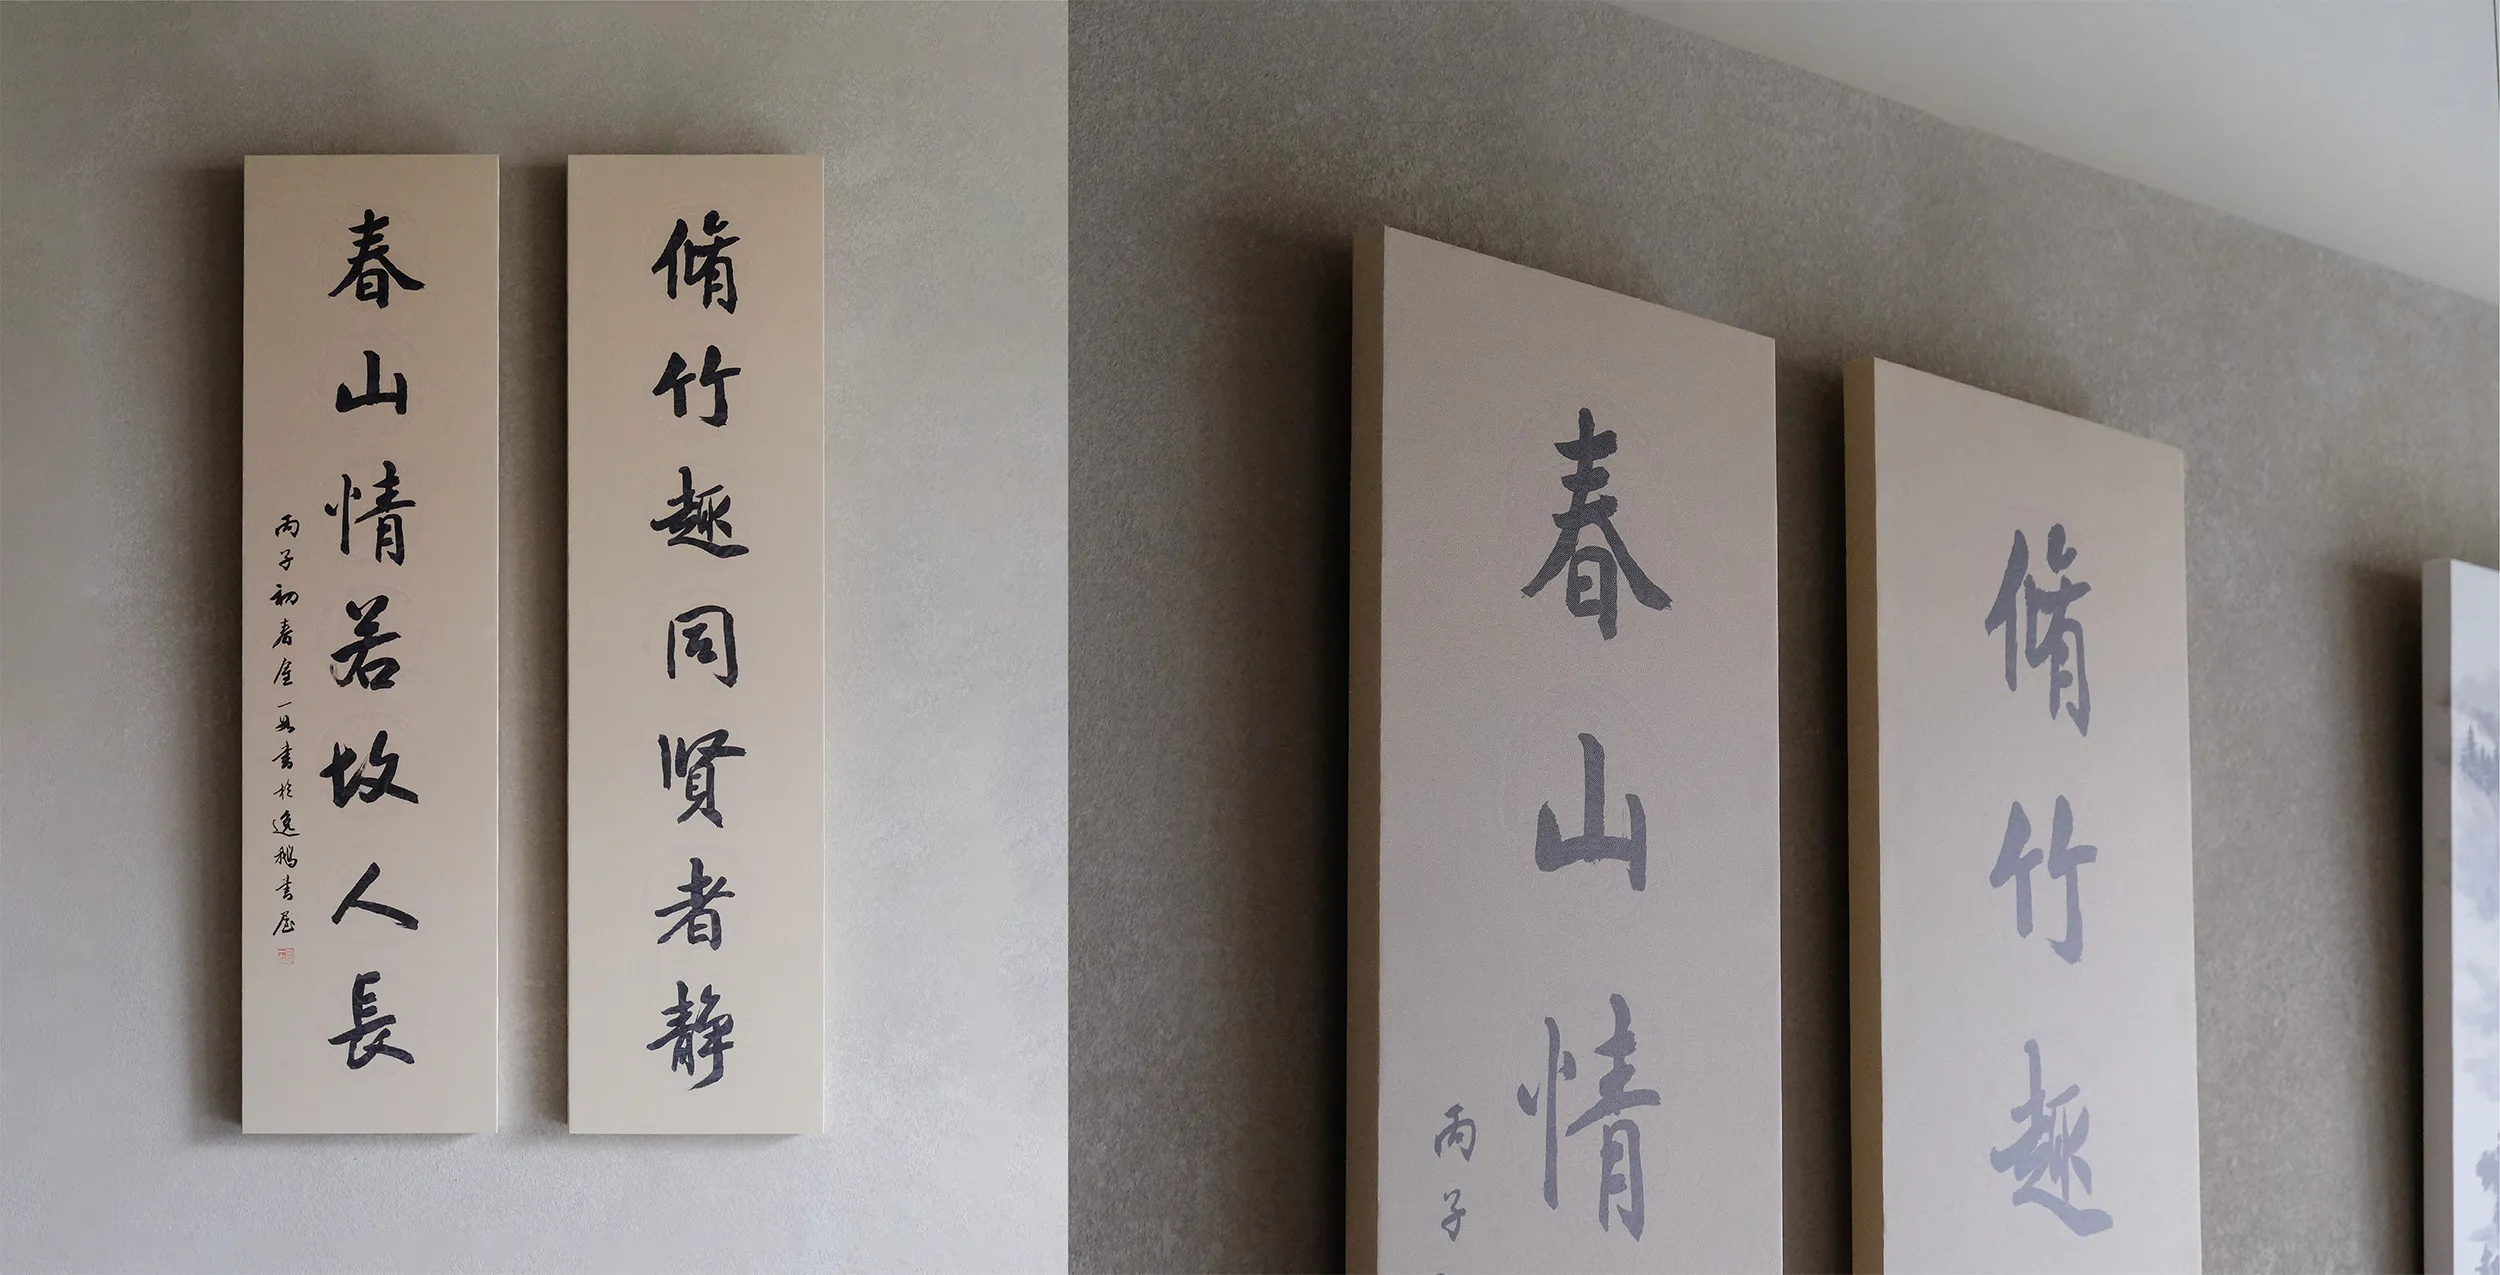 脩竹趣同賢者静
春山情若故人長
丙子初春金一書於逸鵝書屋
脩竹趣
春山情
丙子